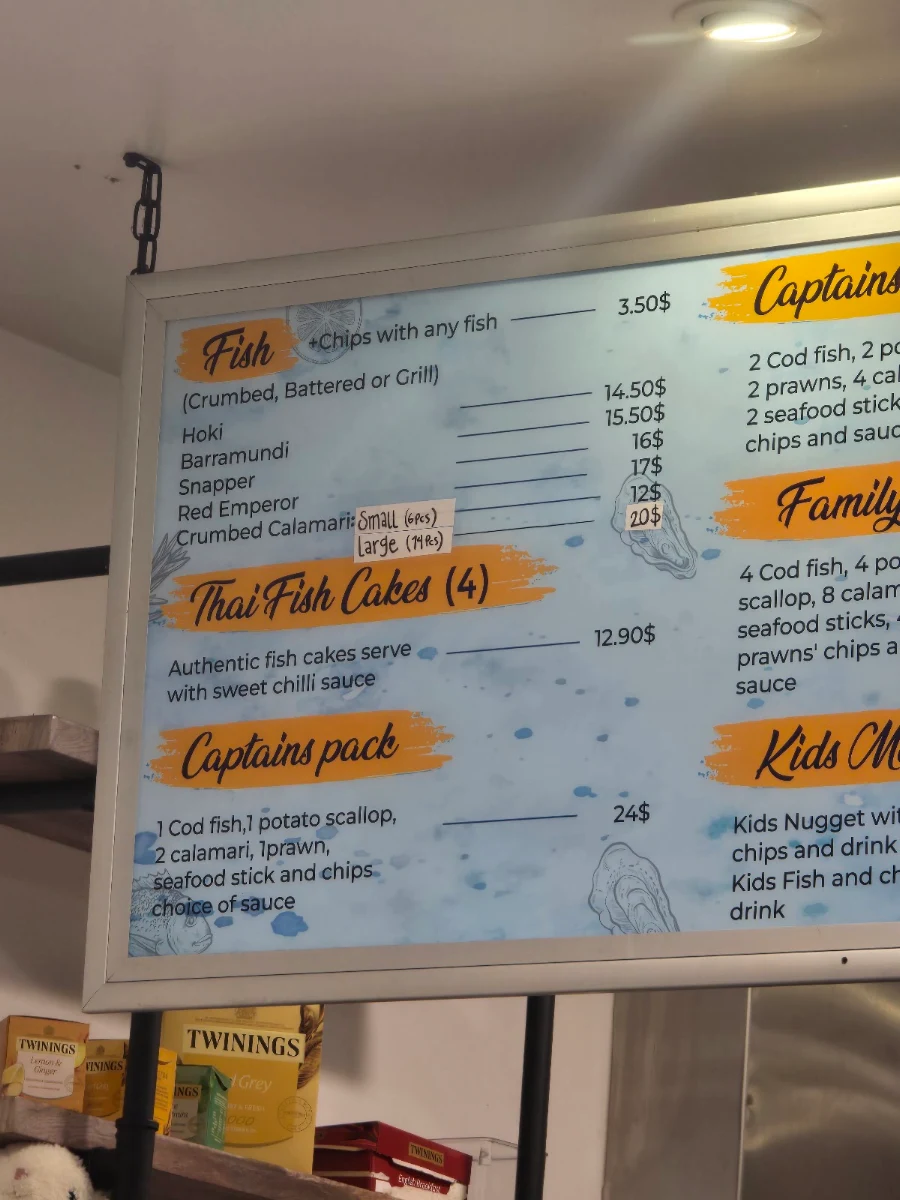 Fish +Chips with any fish 3.50$
(Crumbed, Battered or Grill)
Hoki 14.50$
Barramundi 15.50$
Snapper 16$
Red Emperor 17$
Crumbed Calamari: Small (6pcs) 12$
Large (14Pcs) 20$
Thai Fish Cakes (4)
Authentic fish cakes serve 12.90$
with sweet chilli sauce
Captains pack
1 Cod fish,1 potato scallop, 24$
2 calamari, 1prawn,
seafood stick and chips
choice of sauce
Captains
2 Cod fish, 2
2 prawns, 4
2 seafood
chips and
Family
4 Cod fish, 4
scallop, 8
seafood sticks,
prawns' chips
sauce
Kids
Kids Nugget
chips and drink
Kids Fish and
drink
TWININGS
Lemon &
Ginger
TWININGS
Grey
TWININGS
English Breakfast